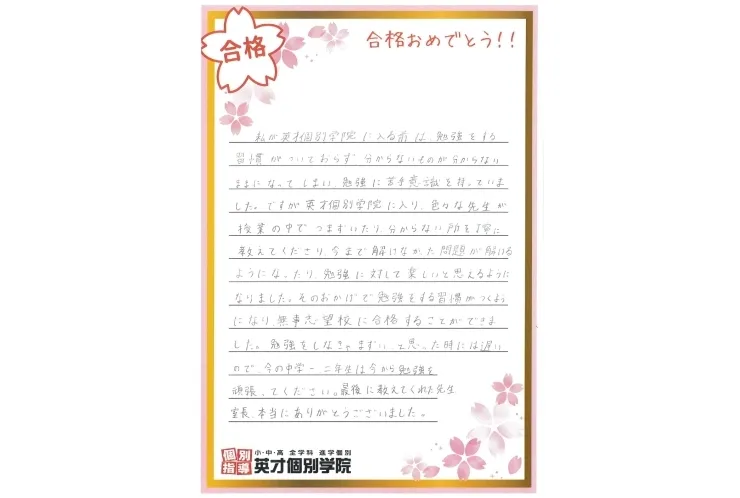 合格
合格おめでとう!!
私が英才個別学院に入る前は、勉強をする
習慣がついておらず 分からないものが分からない
ままになってしまい、勉強に苦手意識を持っていま
した。ですが英才個別学院に入り、色々な先生が
授業の中でつまずいたり、分からない所を丁寧に
教えてくださり、今まで解けなかった問題が解ける
ようになったり、勉強に対して楽しいと思えるように
なりました。そのおかげで勉強をする習慣がつくよう
になり、無事志望校に合格することができま
した。勉強をしなきゃまずい、って思った時には遅い
ので、今の中学一二年生は今から勉強を
頑張ってください。最後に教えてくれた先生
室長、本当にありがとうございました。
個別指導
小・中・高 全学科 進学個別
英才個別学院